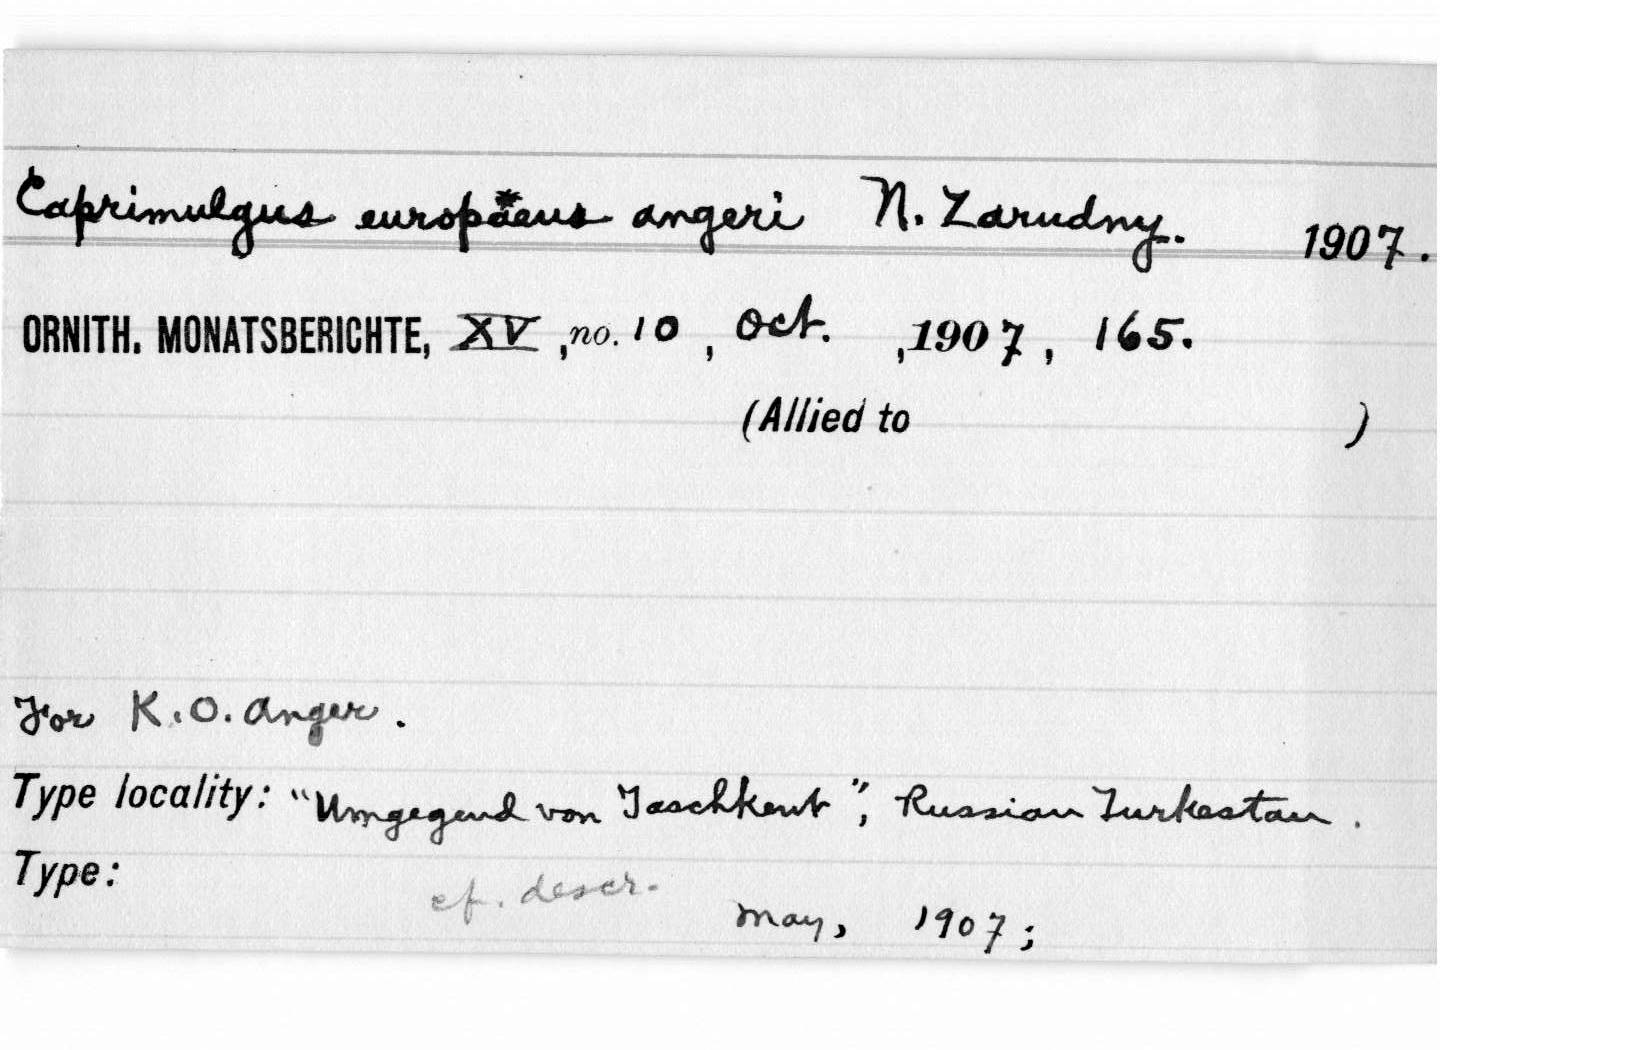 Caprimulgus europäeus angeri N. Zarudny. 1907.
ORNITH. MONATSBERICHTE, XV, no. 10, Oct. , 1907, 165.
(Allied to )
For K.O. Anger.
Type locality: "Umgegend von Taschkent", Russian Turkestan.
Type:
cf. descr.
May, 1907;